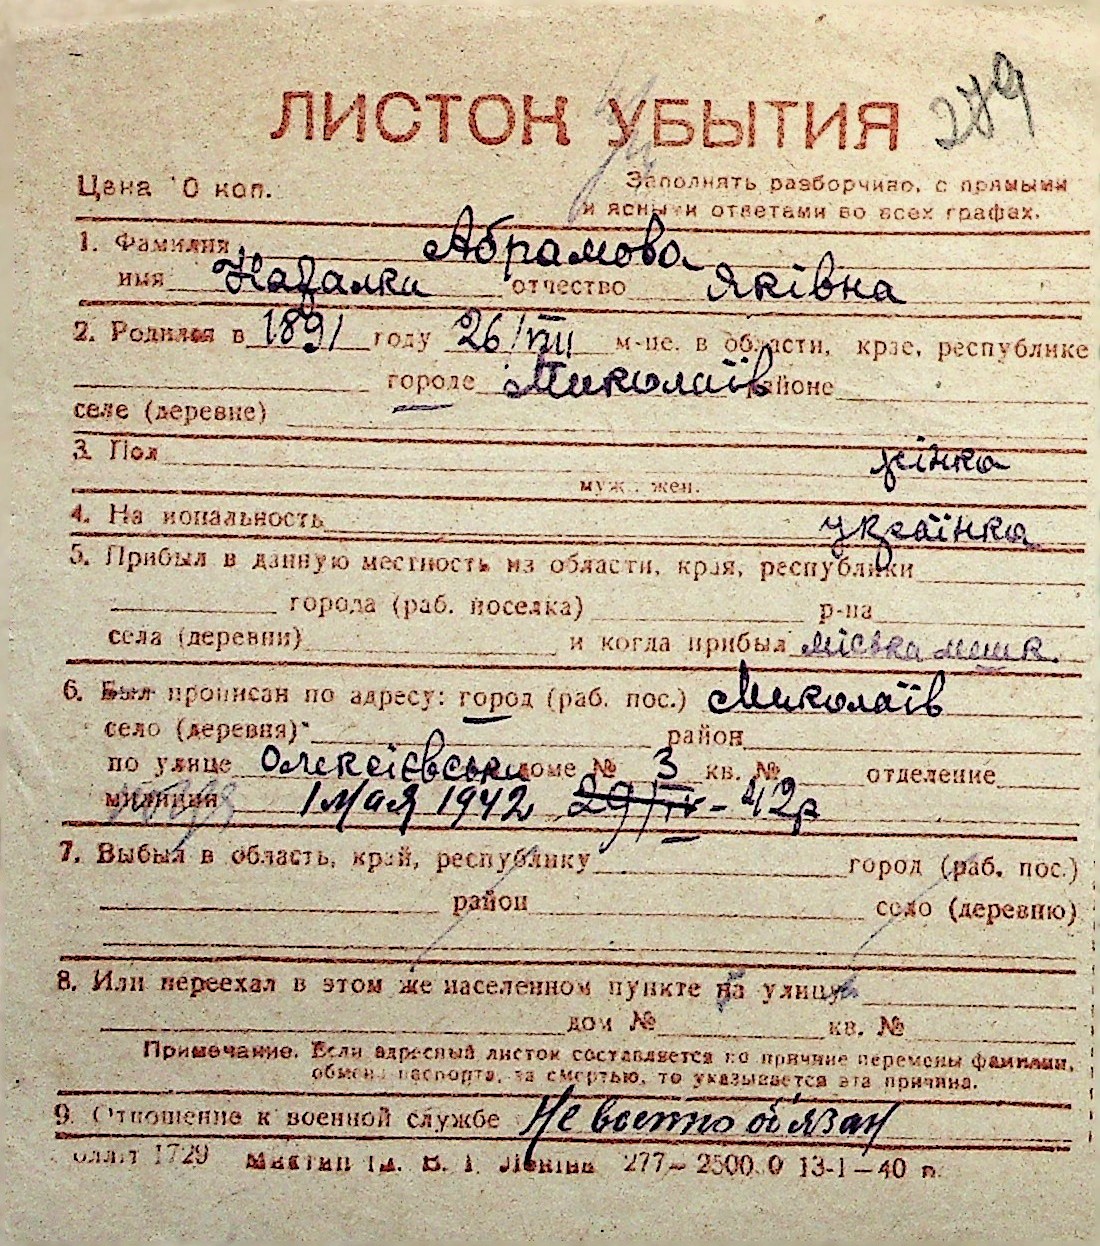 ЛИСТОК УБЫТИЯ 279
Цена 10 коп.
Заполнять разборчиво, с прямыми
и ясными ответами во всех графах.
1. Фамилия Абрамова
имя Наталка отчество Яківна
2. Родился в 1891 году 26/VIII м-це. в области, крае, республике
городе Миколаїв районе
селе (деревне)
3. Пол жінка
муж., жен.
4. Национальность українка
5. Прибыл в данную местность из области, края, республики
города (раб. поселка) р-на
села (деревни) и когда прибыл міська мешк.
6. Был прописан по адресу: город (раб. пос.) Миколаїв
село (деревня) район
по улице Олексієвська доме № 3 кв. № отделение
милиции 1 мая 1942 29/IV - 42р
7. Выбыл в область, край, республику город (раб. пос.)
район село (деревню)
8. Или переехал в этом же населенном пункте на улицу
дом № кв. №
Примечание. Если адресный листок составляется по причине перемены фамилии,
обмена паспорта, за смертью, то указывается эта причина.
9. Отношение к военной службе Не военнообязан
1729 277— 2500.0 13-1—40 п.